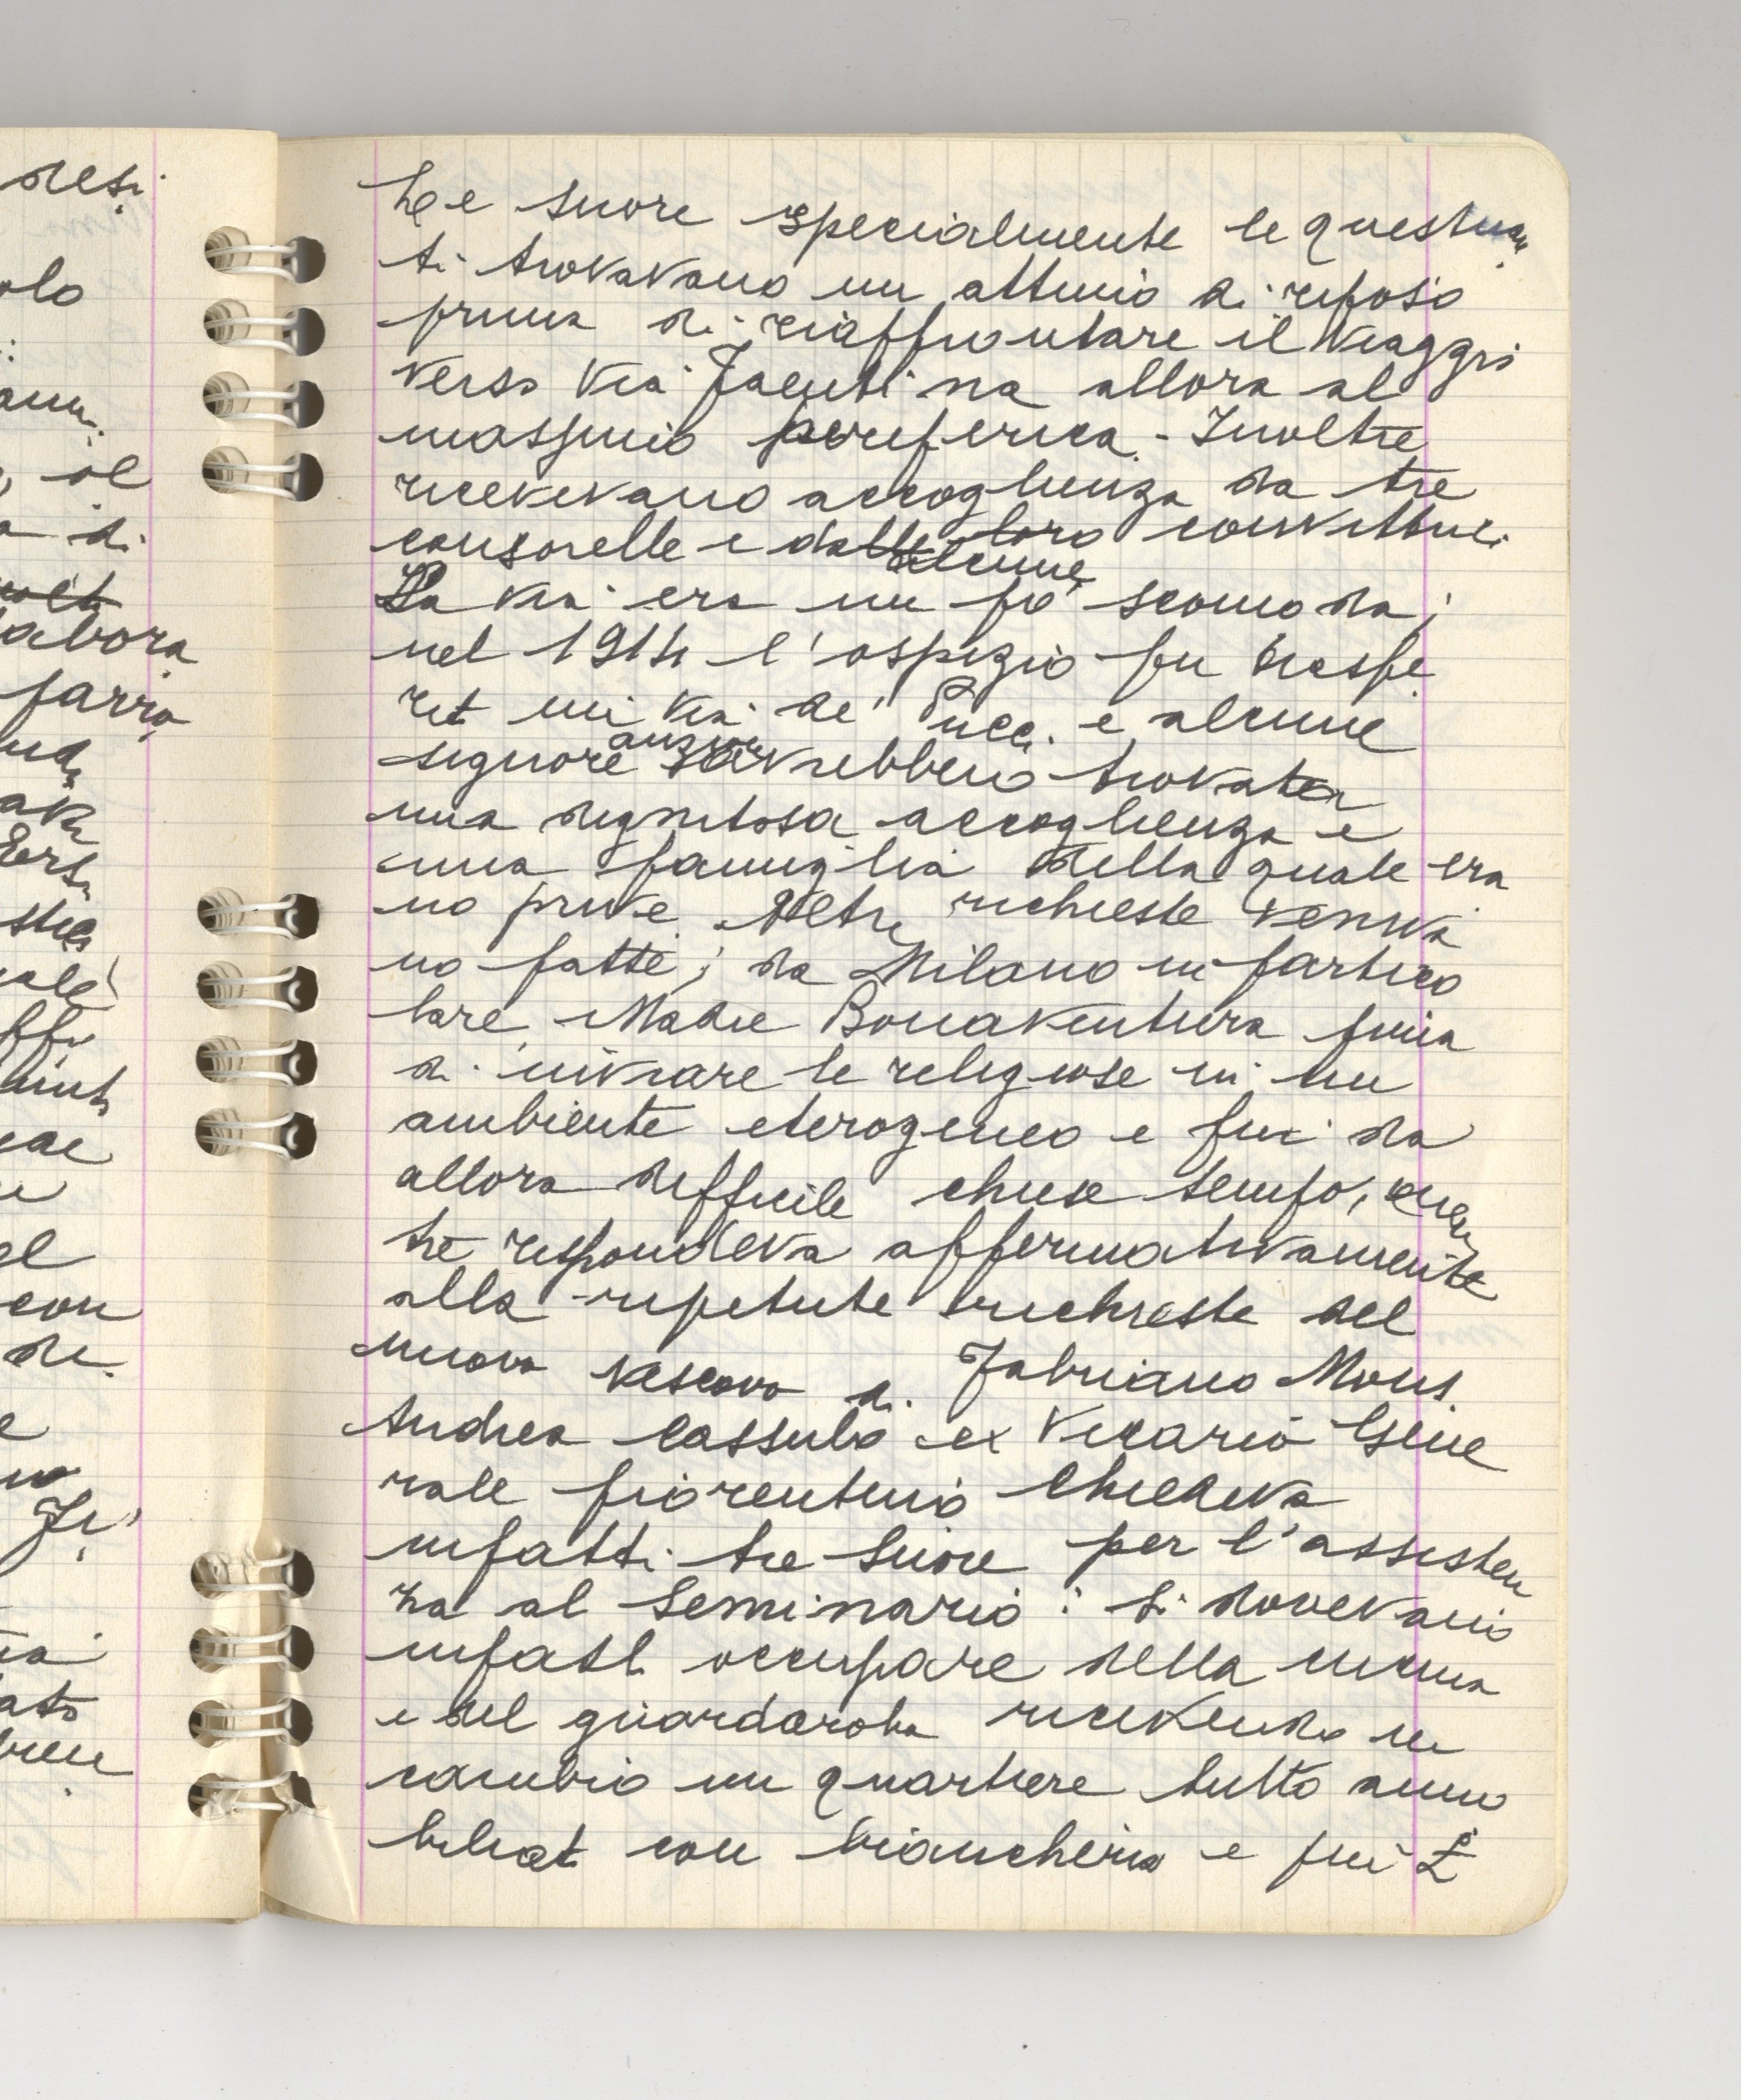 Le suore specialmente le questuan
ti trovavano un attimo di riposo
prima di riaffrontare il viaggio
verso via Faentina allora al
massimo periferica. Inoltre
ricevevano accoglienza da tre
consorelle e dalle loro convittrici
alcune
La via era un po' scomoda;
nel 1914 l'ospizio fu trasfe
rit in via de' Pucci e alcune
anziane
signore avrebbero trovato
una dignitosa accoglienza e
una famiglia della quale era
no prive. Altre richieste veniva
no fatte; da Milano in partico
lare, Madre Bonaventura prima
di inviare le religiose in un
ambiente eterogeneo e fin da
allora difficile chiese tempo, men
tre rispondeva affermativamente
alla ripetute richieste del
nuovo vescovo di Fabriano Mons.
Andrea Cassulo ex Vicario Gene
rale fiorentino chiedeva
infatti tre suore per l'assisten
za al Seminario: si dovevano
infatti occupare della cucina
e del guardaroba ricevendo in
cambio un quartiere tutto ammo
biliat con biancheria e più £
desi
olo
il
di
labora
al
con
di